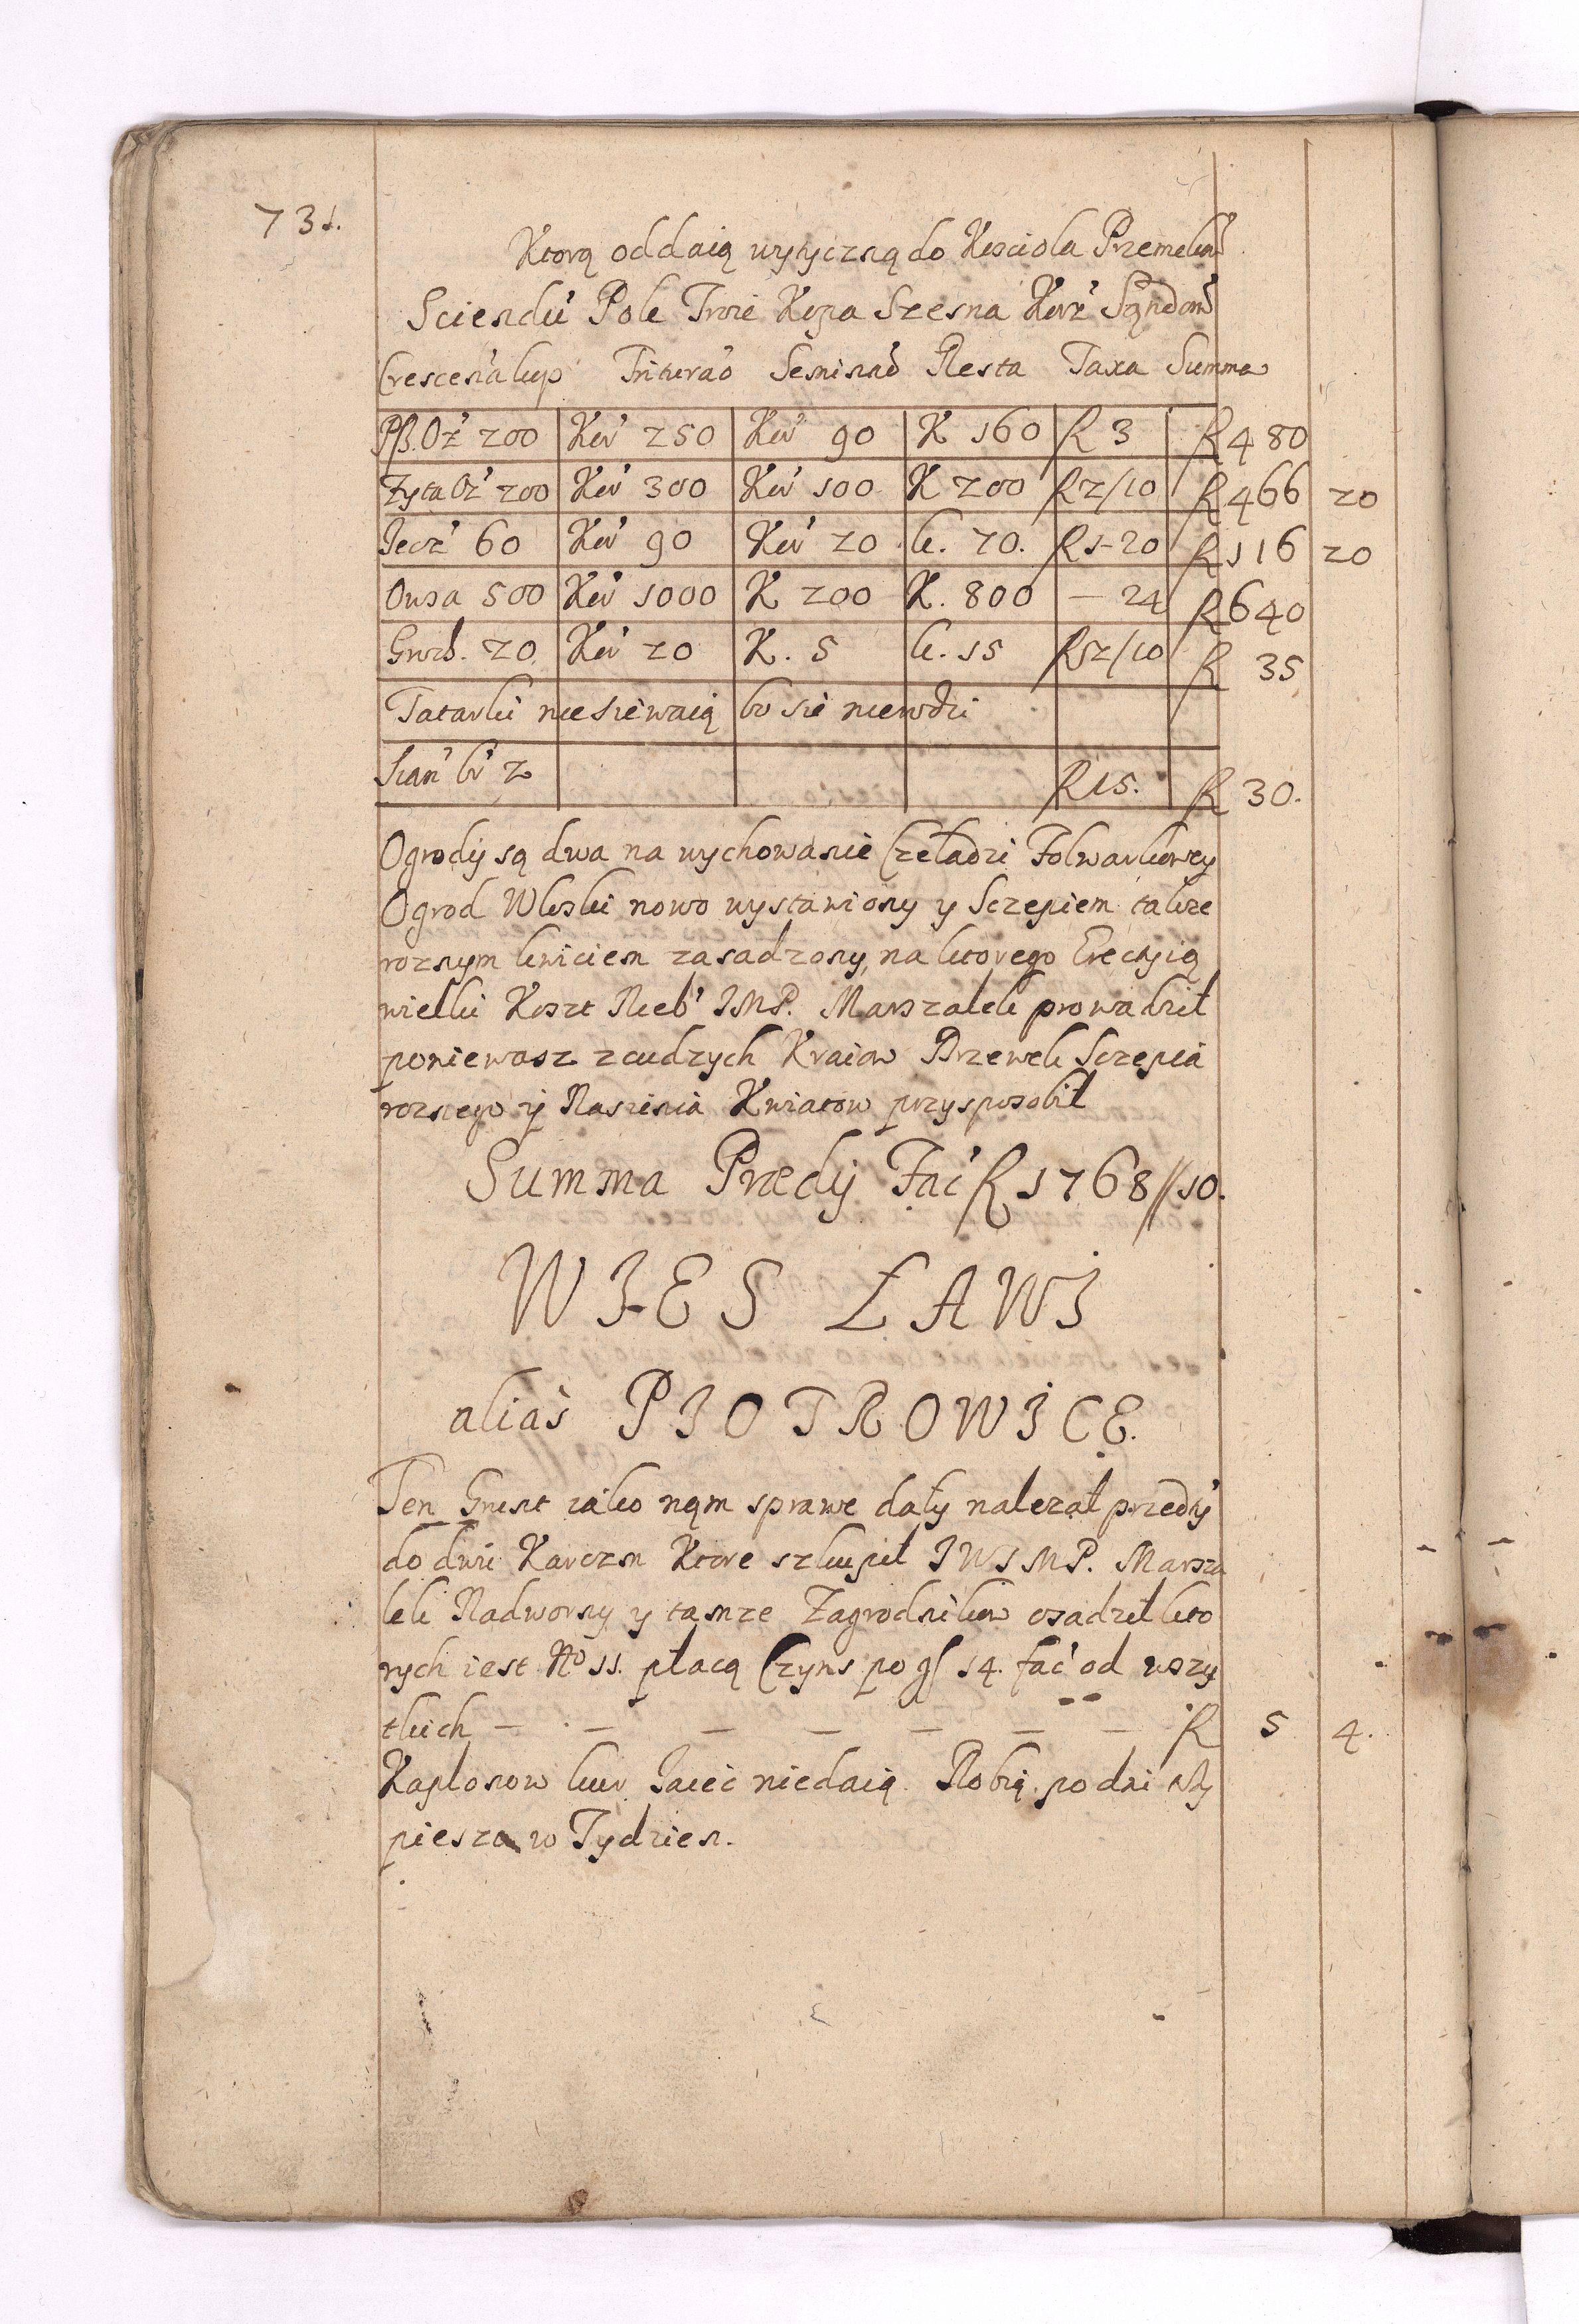 731.
Ktorą oddaią wytyczną do Kosciola Przemekow
Sciendu' Pole Troie Kopa Szesna Korz' Sądom'
Crescen'a kop' Triturao' Seminao' Resta Taxa Summa
Psz. Oz' 200 Kor' 250 Kor' 90 K 160 R 3 R 480
Zyta Oz' 200 Kor' 300 Kor' 100 K 200 R 2/10 R 466 20
Jecz' 60 Kor' 90 Kor' 20 k. 70. R 1-20 R 116 20
Owsa 500 Kor' 1000 K 200 K. 800 – 24 R 640
Groch. 20 Kor' 20 K. 5 k. 15 R 2/10 R 35
Tatarki niesiewaią bo się nierodzi
Sian' br' 2 R 15. R 30.
Ogrody są dwa na wychowanie Czeladzi Folwarkowey
Ogrod Wloski nowo wystawiony y Sczepiem takze
roznym kwiciem zasadzony, na ktorego Erectyią
wielki Koszt Neeb' JMP. Marszalek prowadził
poniewasz z cudzych Kraiow Drzewek Sczepia
roznego y Nasienia Kwiatow przysposobił
Summa Prædij Fac' R 1768//10.
WIES ŁAWI
alias PIOTROWICE.
Ten Grunt iako nąm sprawe dały nalezał przedty'
do dwu Karczm Ktore szkupił JWJMP. Marsza
lek Nadworny y tamze Zagrodnikow osadzil kto
rych iest No 11. płacą Czyns po gr 14. fac' od wszy
tkich – – – – – – – R 5 4.
Kapłonow kur Jaiec niedaią. Robią po dni
piesza w Tydzien.